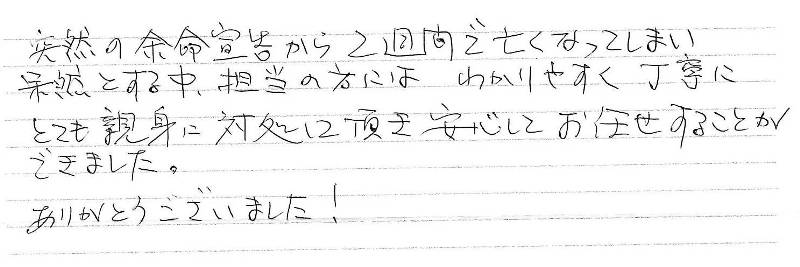 突然の余命宣告から2週間で亡くなってしまい
呆然とする中、担当の方には わかりやすく丁寧に
とても親身に対処して頂き安心してお任せすることが
できました。
ありがとうございました！